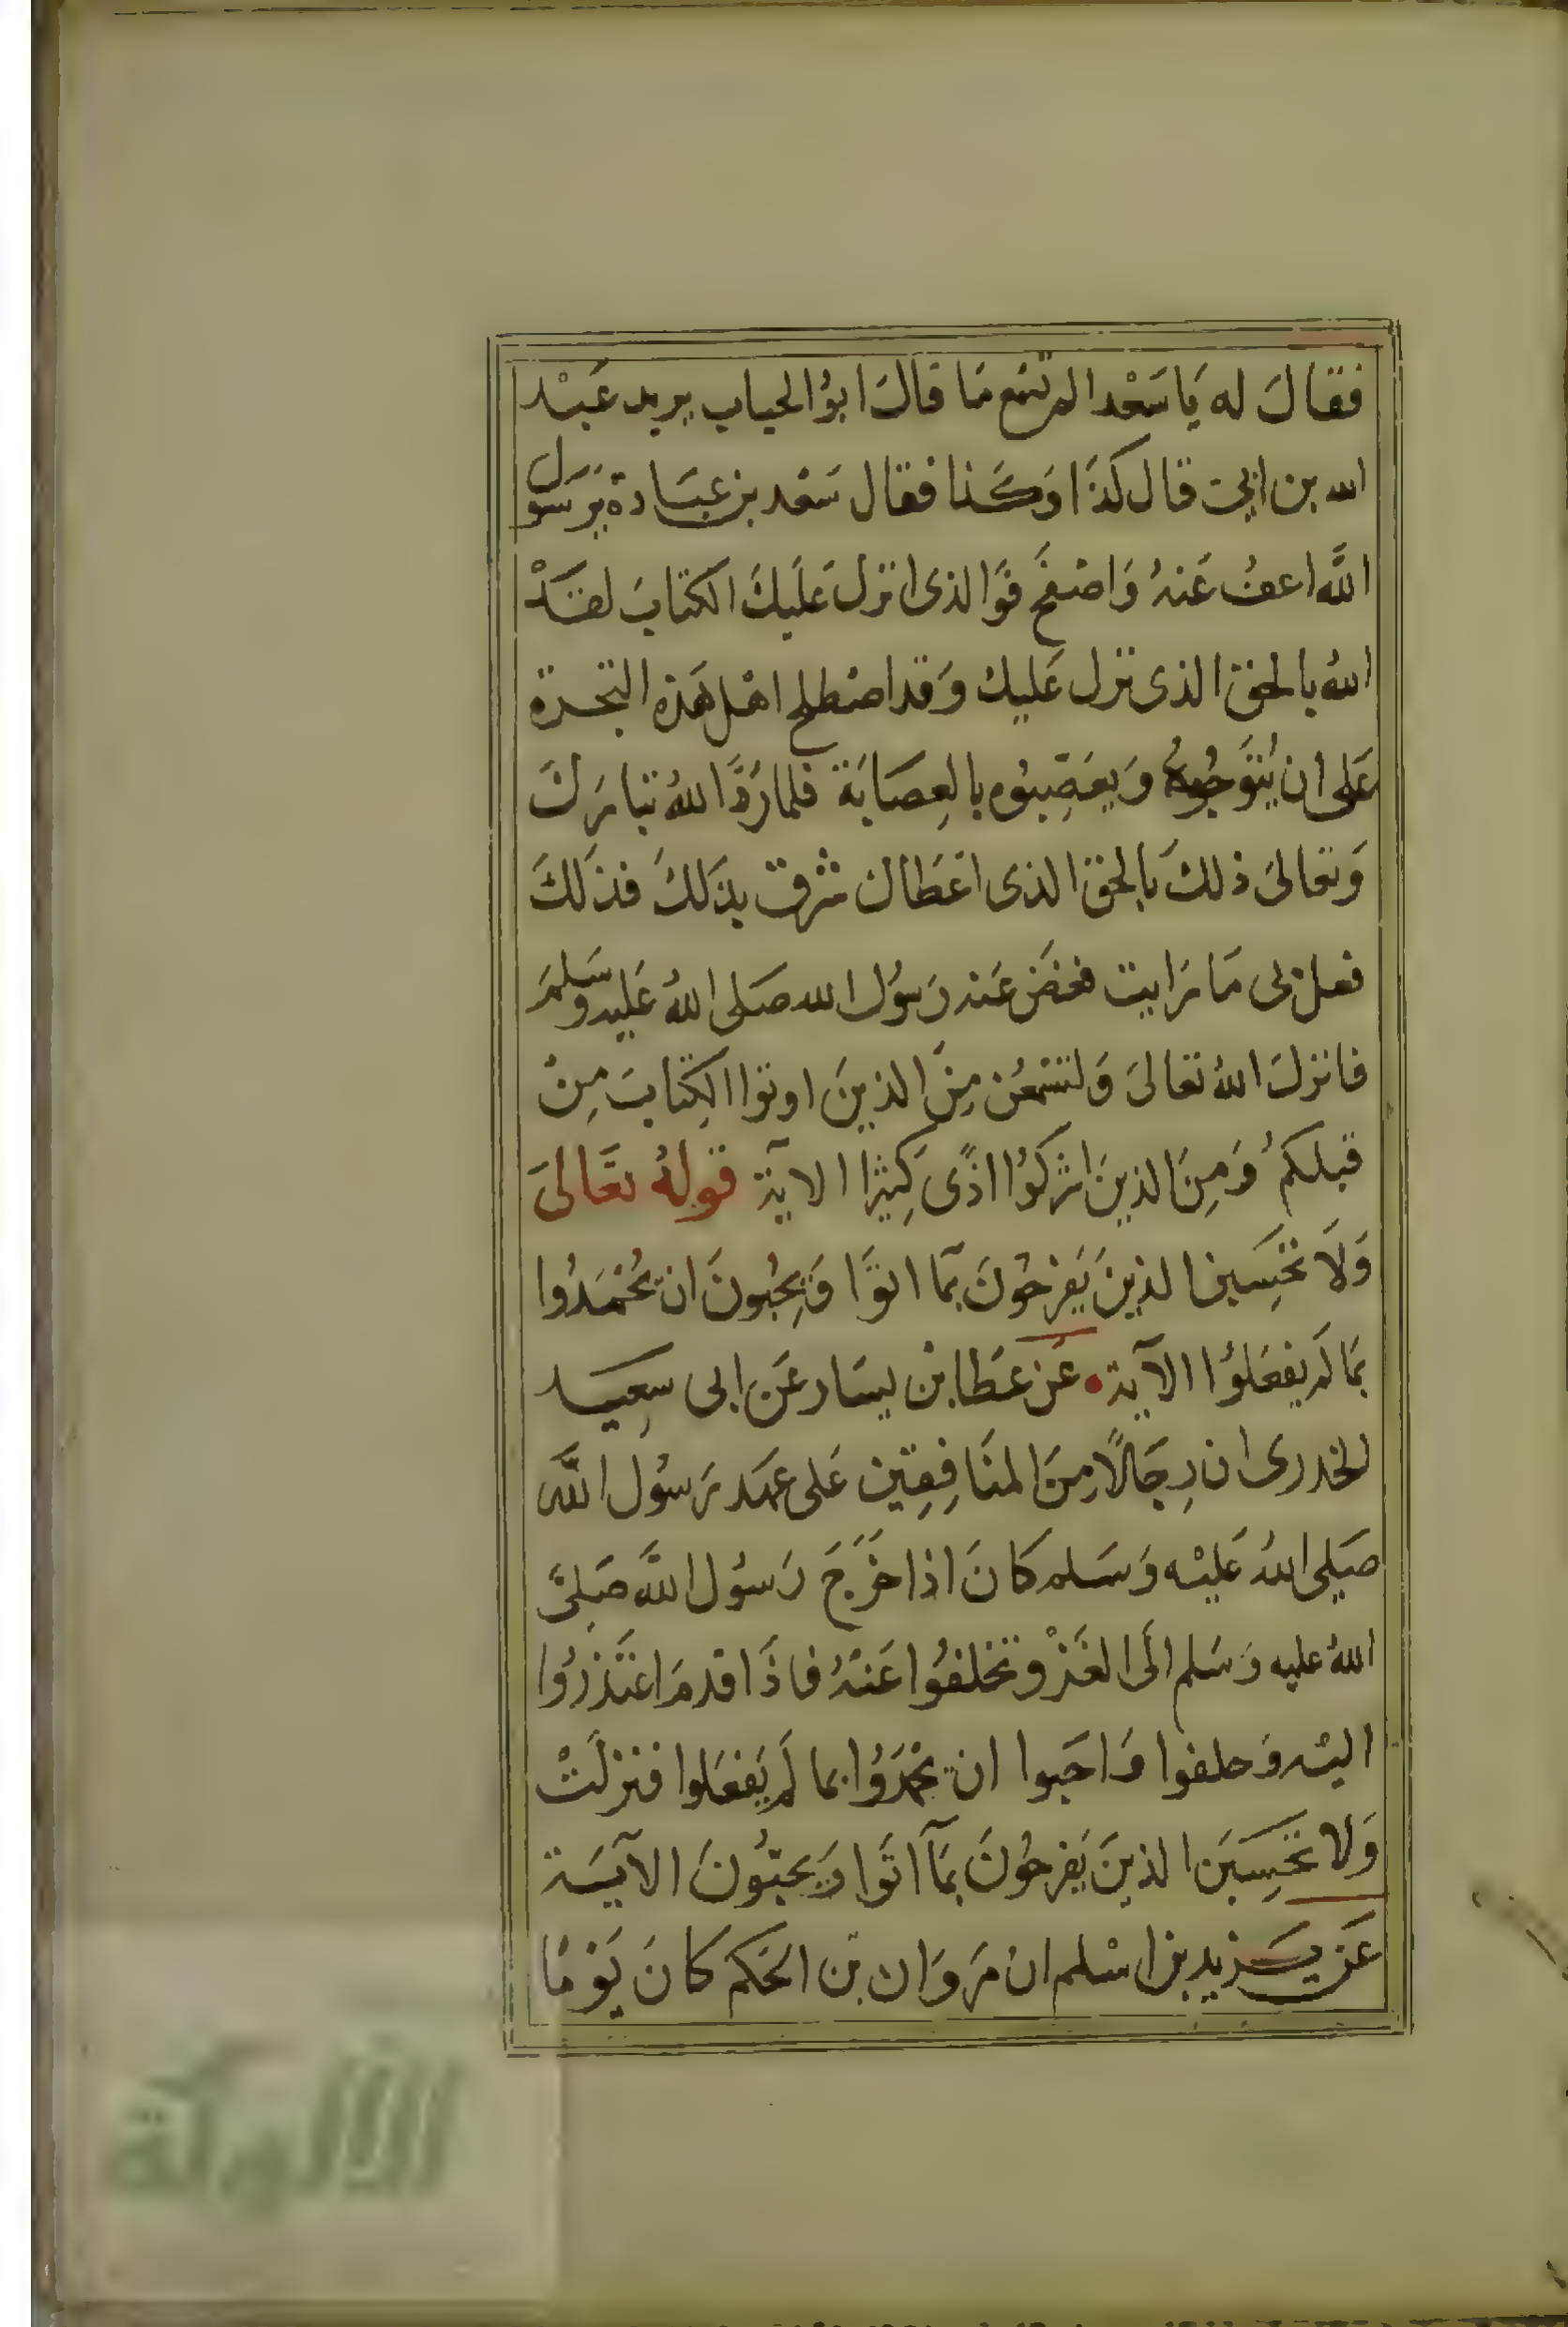 فقالَ له يَا سَعْد الم تسمع مَا قالَ ابوُ الحباب يريد عَبْد
الله بن ابي قال كذَا وَكَذا فقال سَعْد بن عبَادة يَرسَول
اللَّه اعفُ عَنهُ وَاصْفَح فوَالذى انزل عَليكَ الكتابَ لقدْ
اللهُ بالحق الذى نزل عَليك وَقد اصْطلح اهْل هَذه البحرة
عَلى ان يُتَوجُوهُ وَيعَصِبُوه بالعِصَابَة فلما رَدَّ اللهُ تبارَك
وَتعالىَ ذلكَ بالحق الذى اعْطاك شرق بذلكَ فذلكَ
فعل بى مَا رَايت فغضَ عَنه رَسوُل الله صَلى اللهُ عَليه وسَلمَ
فانزلَ اللهُ تعَالىَ وَلتسْمعُن مِنَ الذينَ اوتوا الكِتابَ مِنْ
قبلكمُ وَمِنَ الذينَ اشركوُا اذًى كَثِيْرا الاية قولهُ تعَالىَ
وَلَا تحْسِبن الذينَ يَفرَحُونَ بمَا اتوَا وَيحُبونَ ان يُحْمَدُوا
بمَا لم يفعَلوُا الآية عَن عَطا بن يسَار عَن ابى سعِيد
الخدرى ان رِجَالًا مِنَ المنَافِقِين عَلى عهَد رَسُول اللَّه
صَلى اللهُ عَليْه وَسَلم كَانَ اذا خَرَجَ رَسوُل اللَّه صَلىَّ
اللهُ عليه وَسَلم الَى الغَزْو تخلفوُا عَنهُ فاذَا قدمَ اعتَذرُوا
اليْه وَحلفوا وَاحَبوا ان يحْمَدُوا بما لَم يَفعَلوا فنزلَتْ
وَلا تحْسِبَن الذينَ يَفرحُونَ بمَآ اتَوا وَيحبوُنَ الآيَة
عَن يَزيد بن اسْلم ان مَروَان بن الحَكم كَانَ يَوْمًا
الألوكة